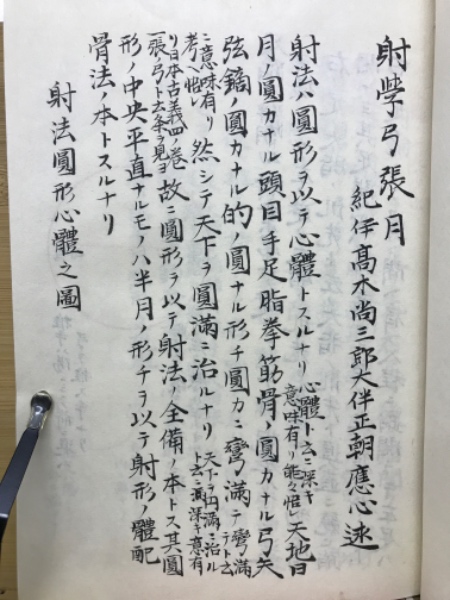 射學弓張月
紀伊髙木尚三郎大伴正朝應心述
射法ハ圓形ヲ以テ心體トスルナリ心體ト云ニ深キ意味有リ能々悟レ天地日
月ノ圓カナル頭目手足脂拳筋骨ノ圓カナル弓矢
弦鏑ノ圓カナル的ノ圓ナル形チ圓カニ彎滿テ彎滿テト云
ニ意味有リ考ヘ悟レ然シテ天下ヲ圓滿ニ治ルナリ天下ヲ円滿ニ治ルト云ニ滿深キ意有
リ日本古義四ノ巻一張ノ弓ト云条ヲ見ヨ故ニ圓形ヲ以テ射法ノ全備ノ本トス其圓
形ノ中央平直ナルモノハ半月ノ形チヲ以テ射形ノ體配
骨法ノ本トスルナリ
射法圓形心體之圖